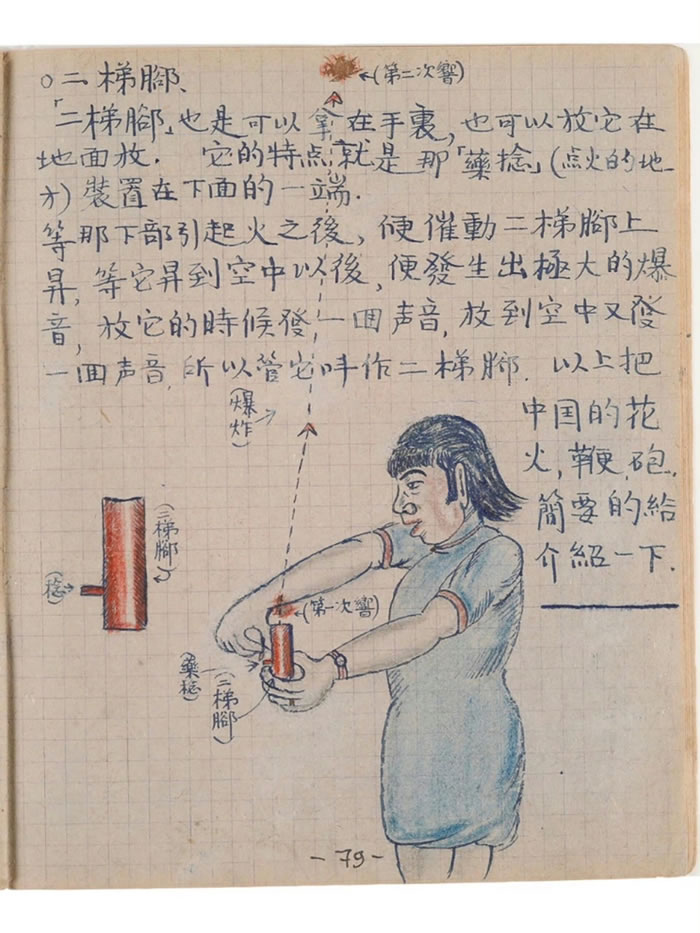 ○二梯腳、
「二梯腳」也是可以拿在手裏，也可以放它在
地面放．它的特点就是那「藥捻」(点火的地
方)裝置在下面的一端．
等那下部引起火之後，便催動二梯腳上
昇，等它昇到空中以後，便發生出極大的爆
音，放它的時候發一囬声音，放到空中又發
一囬声音，所以管它叫作二梯腳．以上把
中国的花
火，鞭，砲，
簡要的給
介紹一下．
(第二次響)
(爆炸)
(二梯腳)
(捻)
(第一次響)
(藥捻)
(二梯腳)
-79-